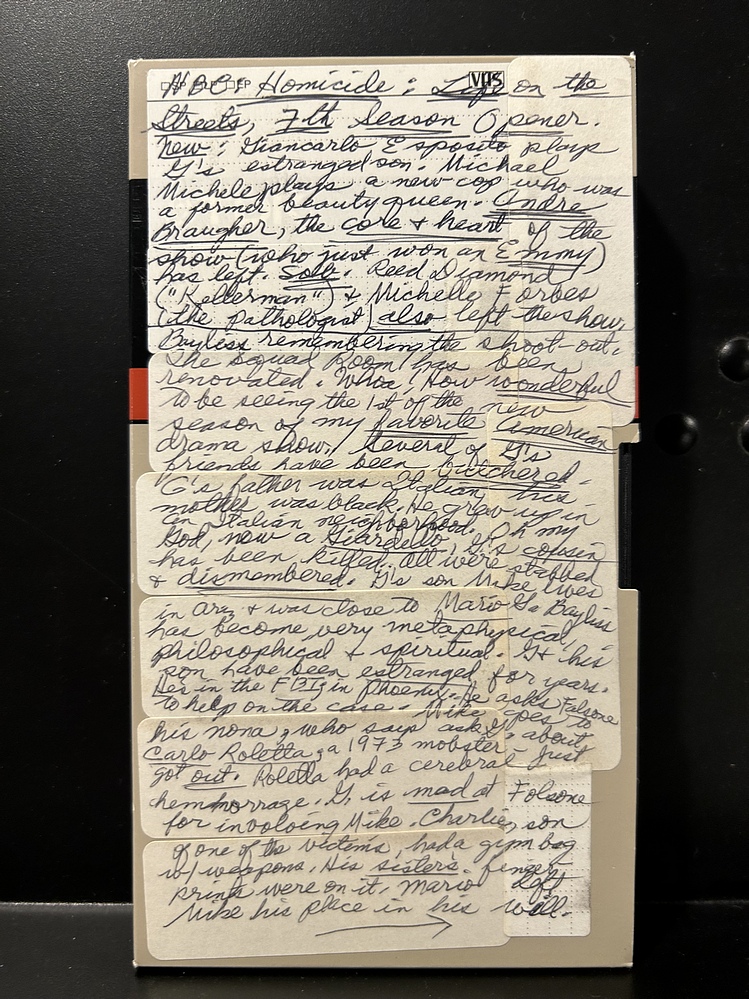 NBC: Homicide: Life on the
VHS
Streets, 7th Season Opener.
New: Giancarlo Esposito plays
G's estranged son. Michael
Michele plays a new cop who was
a former beauty queen. Andre
Braugher, the core + heart of the
show (who just won an Emmy)
has left. Sob. Reed Diamond
("Kellerman") + Michelle Forbes
(the pathologist) also left the show.
Bayliss remembering the shoot-out.
The Squad Room has been
renovated. Whoa! How wonderful
to be seeing the 1st of the new
season of my favorite American
drama show. Several of G's
friends have been butchered.
G's father was Italian, his
mother was black. He grew up in
an Italian neighborhood. Oh my
God, now a Giardello, G's cousin
has been killed. All were stabbed
+ dismembered. G's son Mike lives
in Ariz + was close to Mario G. Bayliss
has become very metaphysical,
philosophical + spiritual. G + his
son have been estranged for years.
He's in the FBI in Phoenix. He asks Falsone
to help on the case. Mike goes to
his nona, who says ask G. about
Carlo Roletta, a 1973 mobster just
got out. Roletta had a cerebral
hemhorrage. G. is mad at Folsone
for involving Mike. Charlie, son
of one of the victims, had a gym bag
w/ weapons. His sister's finger
prints were on it. Mario left
Mike his place in his will.